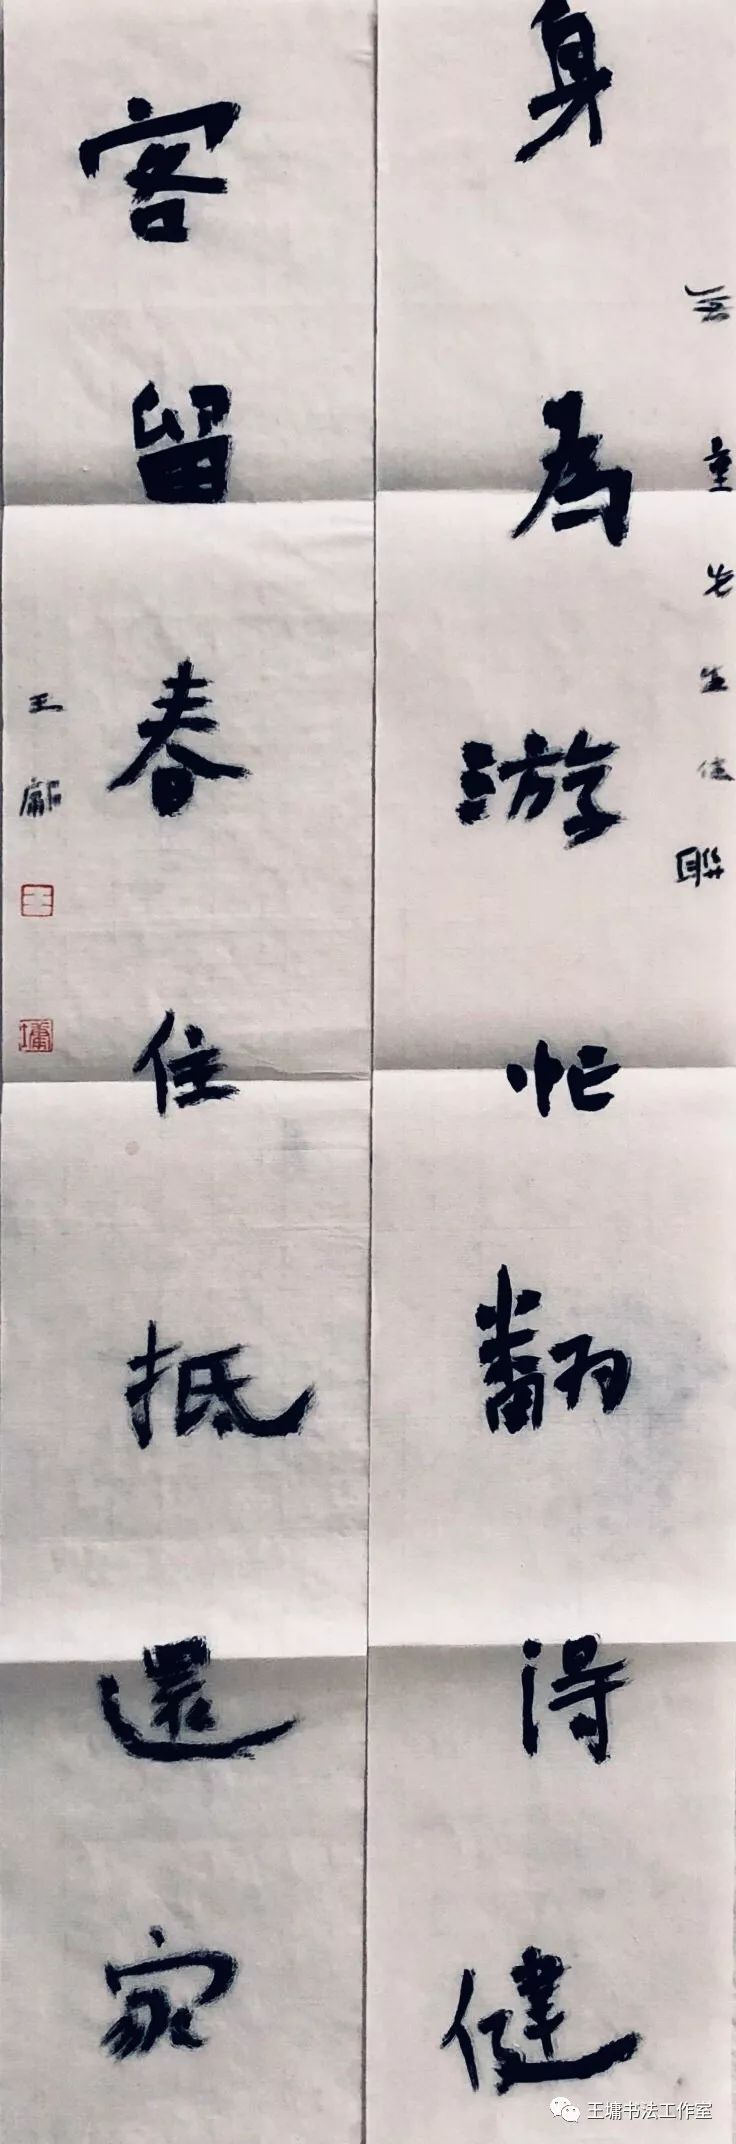 身為游忙翻得健
無量先生佳聯
客留春住抵還家
王鄘
王
墉
王墉书法工作室